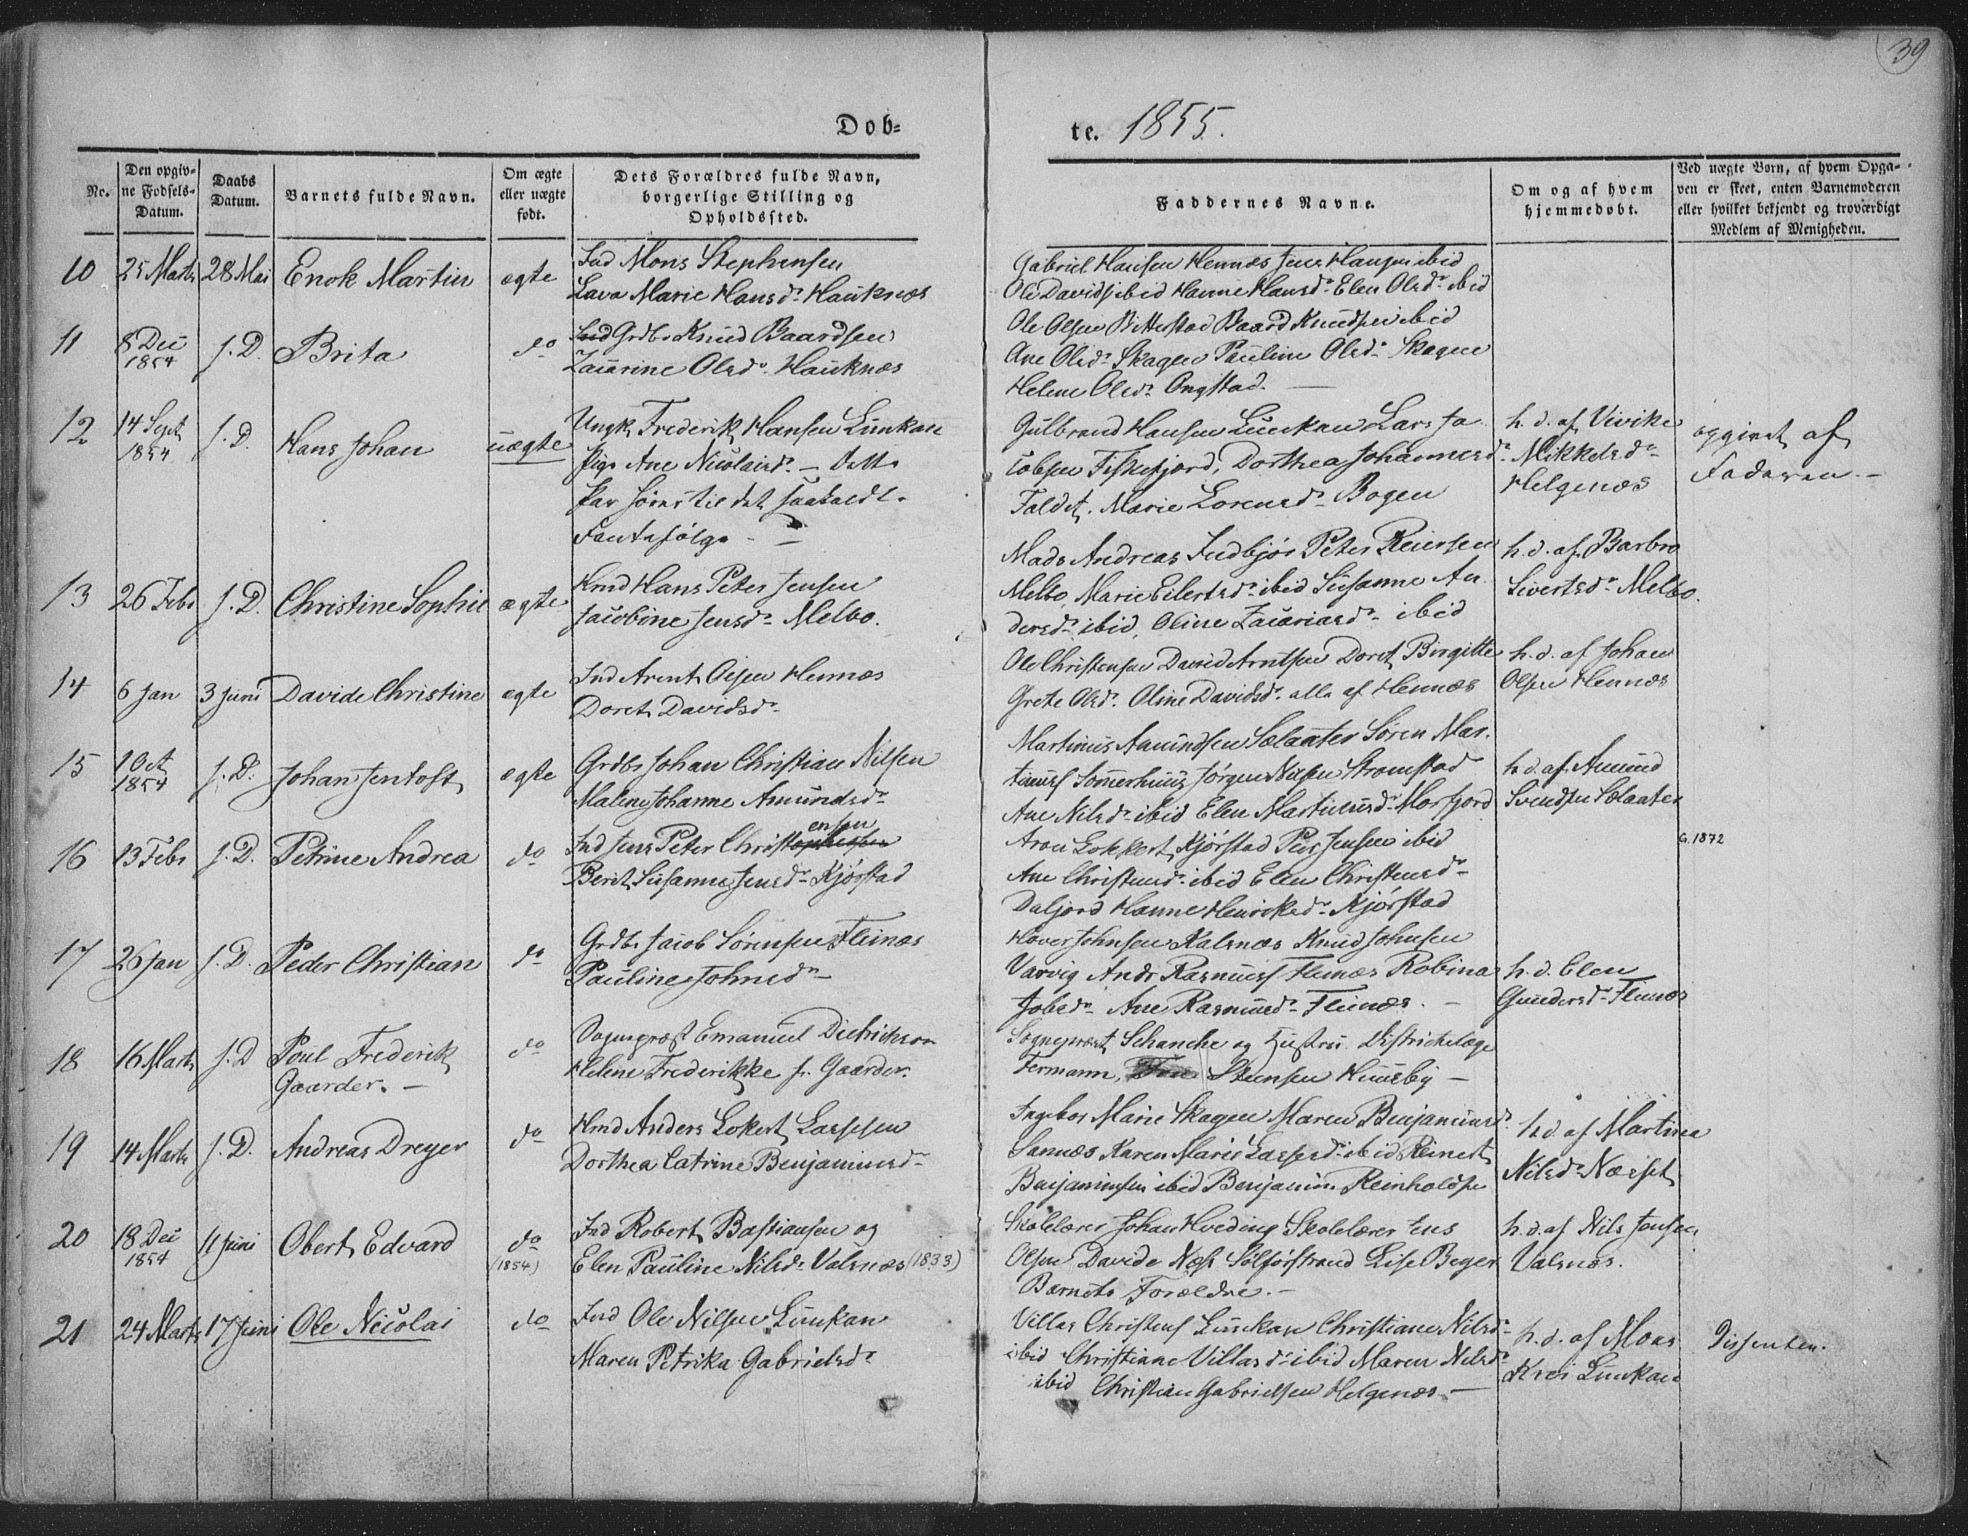 39
Døb= te. 1855.
No.
Den opgiv-
ne Fødsels-
Datum.
Daabs
Datum.
Barnets fulde Navn.
Om ægte
eller uægte
født.
Dets Forældres fulde Navn,
borgerlige Stilling og
Opholdssted.
Faddernes Navne.
Om og af hvem
hjemmedøbt.
Ved uægte Børn, af hvem Opga-
ven er skeet, enten Barnemoderen
eller hvilket bekjendt og troværdigt
Medlem af Menigheden.
10 25 Marts 28 Mai Enok Martin ægte
Ind Mons Stephensen
Lava Marie Hansdr Hauknæs
Gabriel Hansen Hennæs Jens Hansen ibid
Ole Davids ibid Hanne Hansdr Elen Olsdr ibid
11 8 Dec 1854 s. D. Brita do
Grdbr Knud Baardsen
Zacarine Olsdr Hauknæs
Ole Olsen Bitterstad Baard Knudsen ibid
Ane Olsdr Skagen Pauline Olsdr Skagen
Helene Olsdr Ongstad.
12 14 Sept 1854 s. D. Hans Johan uægte
Ungk Frederik Hansen Lunkan
Pige Ane Nicolaisdr - Dette
Par høres til det saakaldte
Fantefølge -
Gulbrand Hansen Lunkan Lars Ja
cobsen Fiskefjord, Dorthea Johannesdr
Faldet. Marie Lorensdr Bogen
h. d. af Vivike
Mikkelsdr
Helgenæs
opgivet af
Faderen. -
13 26 Febr s. D. Christine Sophie ægte
Hmd Hans Peter Jensen
Jacobine Jensdr Melbo.
Mads Andreas Indbjør Peter Reiersen
Melbo, Marie Eilertsdr ibid Susanne An
dersdr ibid, Oline Zacariasdr ibid
h. d. af Barbro
Sivertsdr Melbo.
14 6 Jan 3 Juni Davide Christine ægte
Ind Arent Olsen Hennæs
Doret Davidsdr
Ole Christensen David Arntsen Doret Birgitte
Grete Olsdr. Oline Davidsdr. alle af Hennæs
h. d. af Johan
Olsen Hennæs
15 1 Oct 1854 s. D. Johan Jentoft ægte
Grdbr Johan Christian Nilsen
Malene Johanne Amundsdr
Martinus Amundsen Sælaater Søren Mar.
tinuss Sommerhuus Jørgen Nilsen Strømstad
Ane Nilsdr ibid Elen Martinusdr Morfjord
h. d. af Amund
Svendsen Sælaater
16 13 Febr s. D. Petrine Andrea do
Ind Jens Peter Christophersen
ensen
Berit Susanne Jensdr Kjørstad
Aron Lokkert Kjørstad Peer Jensen ibid
Ane Christensdr ibid Elen Christensdr
Daljord Hanne Henriksdr Kjørstad
G. 1872
17 26 Jan s. D. Peder Christian do
Grdbr Jacob Sørensen Flenæs
Pauline Johnsdr
Hover Johnsen Kalsnæs Knud Johnsen
Varvig Andr Rasmuss Flenæs Robina
Jobsdr Ane Rasmusdr Flenæs. -
h. d. Elen
Gundersdr Flenæs
18 16 Marts s. D Poul Frederik
Gaarder. - do
Sogneprest Emanuel Dietrichson
Helene Frederikke f. Gaarder.
Sogneprest Schanche og Hustru Districtslæge
Fermann, Steensen Huusby -
19 14 Marts s. D. Andreas Dreyer do
Hmd Anders Lokert Larssen
Dorthea Catrine Benjaminsdr
Ingebor Marie Skagen Maren Benjaminsdr
Sannæs Karen Marie Larsesdr ibid Reinert
Benjaminsen ibid Benjamin Reinholdsen
h. d. af Martina
Nilsdr Næsset
20 18 Dec 1854 11 Juni Obert Edvard do (1854)
Ind Robert Bastiansen og
Elen Pauline Nilsdr Valsnæs (1833)
Skolelærer Johan Hveding Skolelærer Jens
Olsen Davide Næss Sølførstrand Lise Beyer
Barnets Forældre. -
h. d. af Nils Jensen
Valsnæs.
21 24 Marts 17 Juni Ole Nicolai do
Ind Ole Nilsen Lunkan
Maren Petrika Gabrielsdr
Villas Christens Lunkan Christiane Nilsdr
ibid Christiane Villasdr ibid Maren Nilsdr
ibid Christian Gabrielsen Helgenæs -
h. d. af Mons
Krei Lunkan
Dissenter.